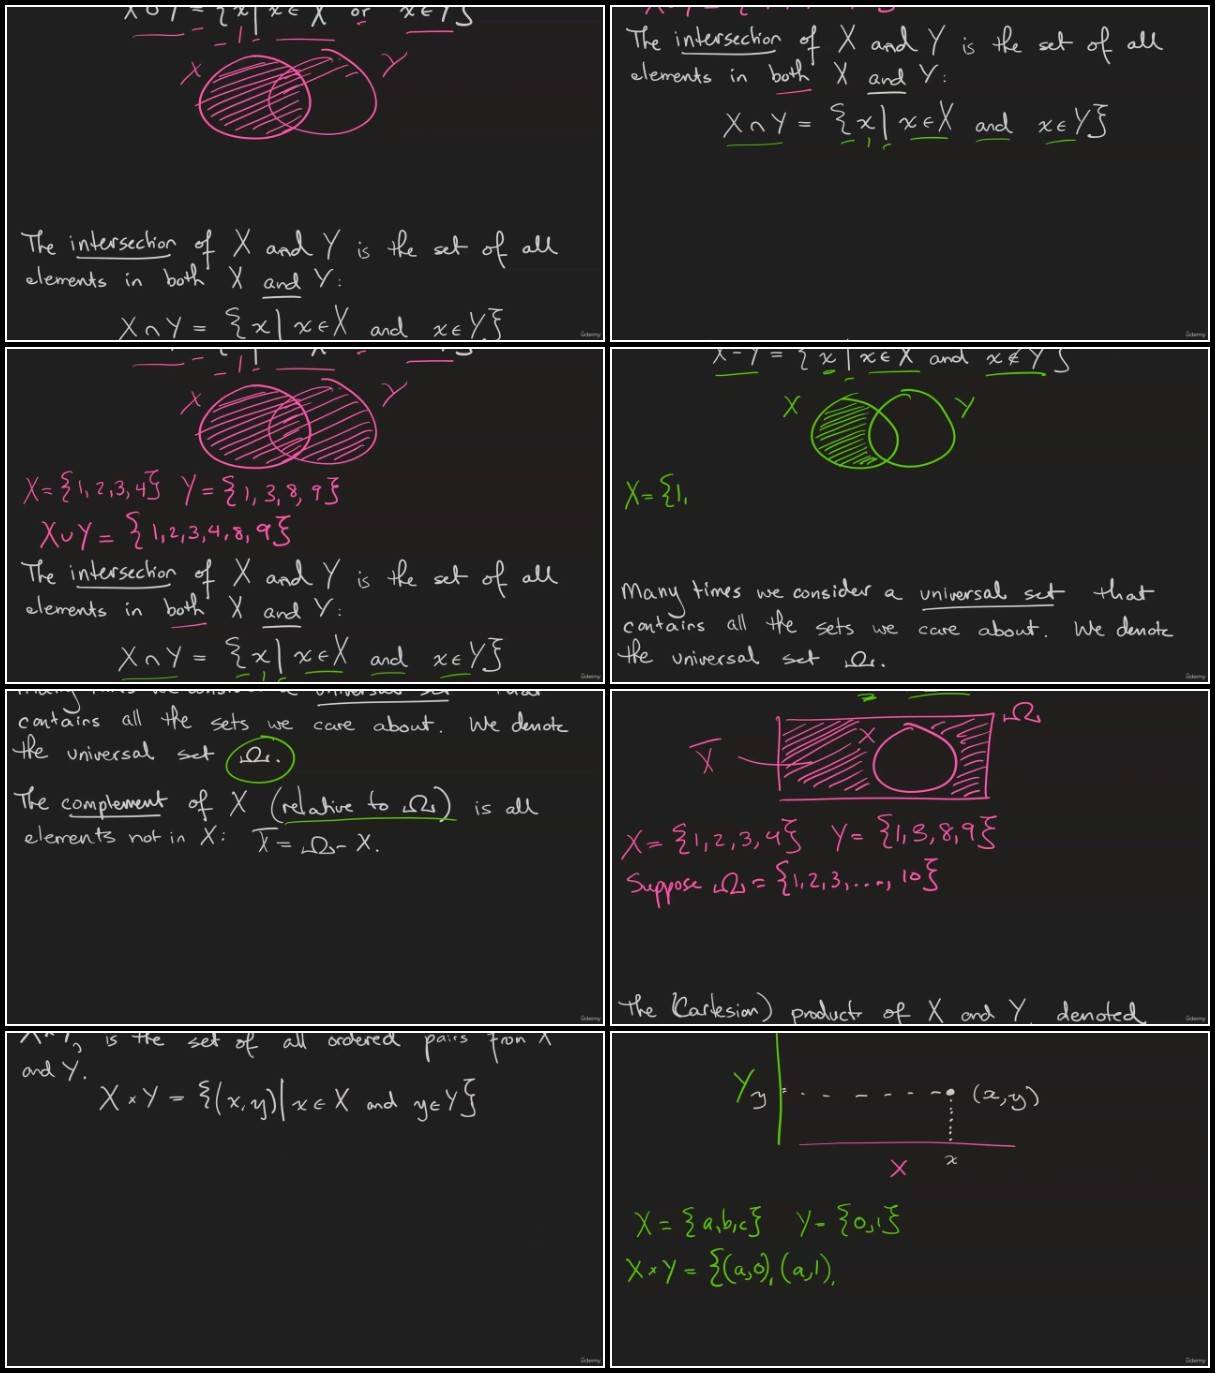 X ∪ Y = {x | x ∈ X or x ∈ Y}
X Y
The intersection of X and Y is the set of all
elements in both X and Y:
X ∩ Y = {x | x ∈ X and x ∈ Y}
Udemy
The intersection of X and Y is the set of all
elements in both X and Y:
X ∩ Y = {x | x ∈ X and x ∈ Y}
Udemy
X Y
X = {1, 2, 3, 4} Y = {1, 3, 8, 9}
X ∪ Y = {1, 2, 3, 4, 8, 9}
The intersection of X and Y is the set of all
elements in both X and Y:
X ∩ Y = {x | x ∈ X and x ∈ Y}
Udemy
X - Y = {x | x ∈ X and x ∉ Y}
X Y
X = {1,
Many times we consider a universal set that
contains all the sets we care about. We denote
the universal set Ω.
Udemy
Many times we consider a universal set that
contains all the sets we care about. We denote
the universal set Ω.
The complement of X (relative to Ω) is all
elements not in X: X̅ = Ω - X.
Udemy
Ω
X
X̅
X = {1, 2, 3, 4} Y = {1, 3, 8, 9}
Suppose Ω = {1, 2, 3, ..., 10}
The (Cartesian) product of X and Y, denoted
Udemy
X × Y, is the set of all ordered pairs from X
and Y.
X × Y = {(x, y) | x ∈ X and y ∈ Y}
Udemy
Y y (x, y)
X x
X = {a, b, c} Y = {0, 1}
X × Y = {(a, 0), (a, 1),
Udemy